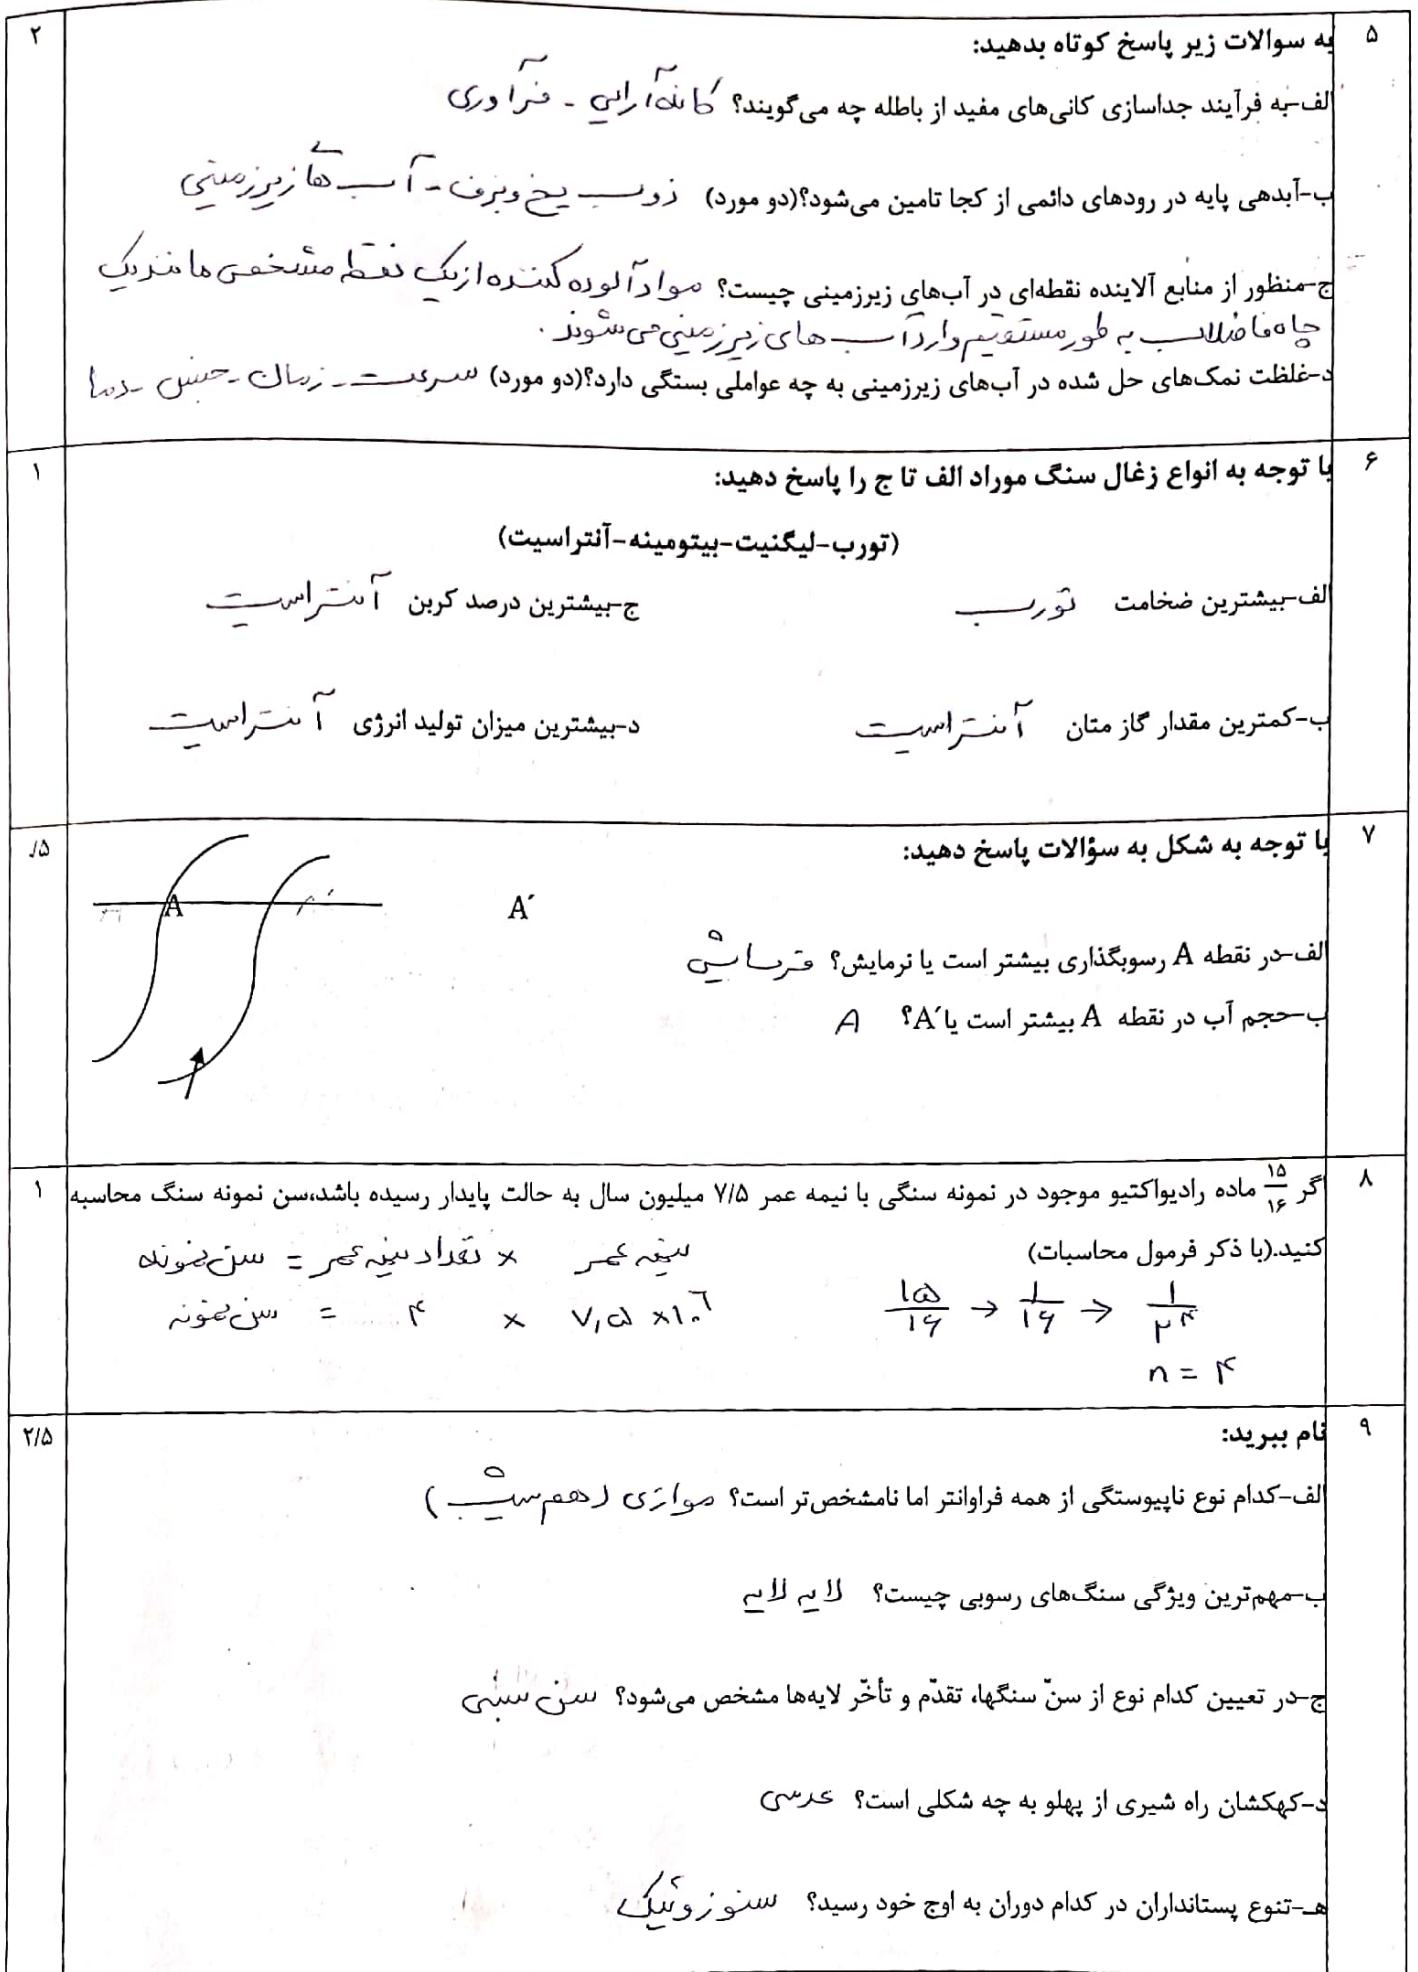 ۵
به سوالات زیر پاسخ کوتاه بدهید:
۲
الف-به فرآیند جداسازی کانی‌های مفید از باطله چه می‌گویند؟ کانه‌آرایی - فرآوری
ب-آبدهی پایه در رودهای دائمی از کجا تامین می‌شود؟(دو مورد) ذوب یخ و برف - آب های زیرزمینی
ج-منظور از منابع آلاینده نقطه‌ای در آب‌های زیرزمینی چیست؟ مواد آلوده کننده از یک نقطه مشخص مانند یک
چاه فاضلاب به طور مستقیم وارد آب های زیرزمینی می شوند.
د-غلظت نمک‌های حل شده در آب‌های زیرزمینی به چه عواملی بستگی دارد؟(دو مورد) سرعت - زمان - جنس - دما
۶
با توجه به انواع زغال سنگ موراد الف تا ج را پاسخ دهید:
۱
(تورب-لیگنیت-بیتومینه-آنتراسیت)
الف-بیشترین ضخامت تورب
ج-بیشترین درصد کربن آنتراسیت
ب-کمترین مقدار گاز متان آنتراسیت
د-بیشترین میزان تولید انرژی آنتراسیت
۷
با توجه به شکل به سؤالات پاسخ دهید:
/۵
A
A´
الف-در نقطه A رسوبگذاری بیشتر است یا نرمایش؟ فرسایش
ب-حجم آب در نقطه A بیشتر است یا A´؟ A
۸
اگر ۱۵/۱۶ ماده رادیواکتیو موجود در نمونه سنگی با نیمه عمر ۷/۵ میلیون سال به حالت پایدار رسیده باشد،سن نمونه سنگ محاسبه
۱
کنید.(با ذکر فرمول محاسبات)
نیمه عمر × تعداد نیمه عمر = سن نمونه
۱۵/۱۶ → ۱/۱۶ → ۱/۲^۴
۷,۵ ×۱۰^۶ × ۴ = سن نمونه
n = ۴
۹
نام ببرید:
۲/۵
الف-کدام نوع ناپیوستگی از همه فراوانتر اما نامشخص‌تر است؟ موازی (هم شیب)
ب-مهم‌ترین ویژگی سنگ‌های رسوبی چیست؟ لایه لایه
ج-در تعیین کدام نوع از سنّ سنگها، تقدّم و تأخّر لایه‌ها مشخص می‌شود؟ سن نسبی
د-کهکشان راه شیری از پهلو به چه شکلی است؟ عدسی
هـ-تنوع پستانداران در کدام دوران به اوج خود رسید؟ سنوزوئیک